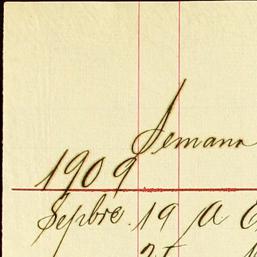 Semana
1909
Sepbre. 19 A